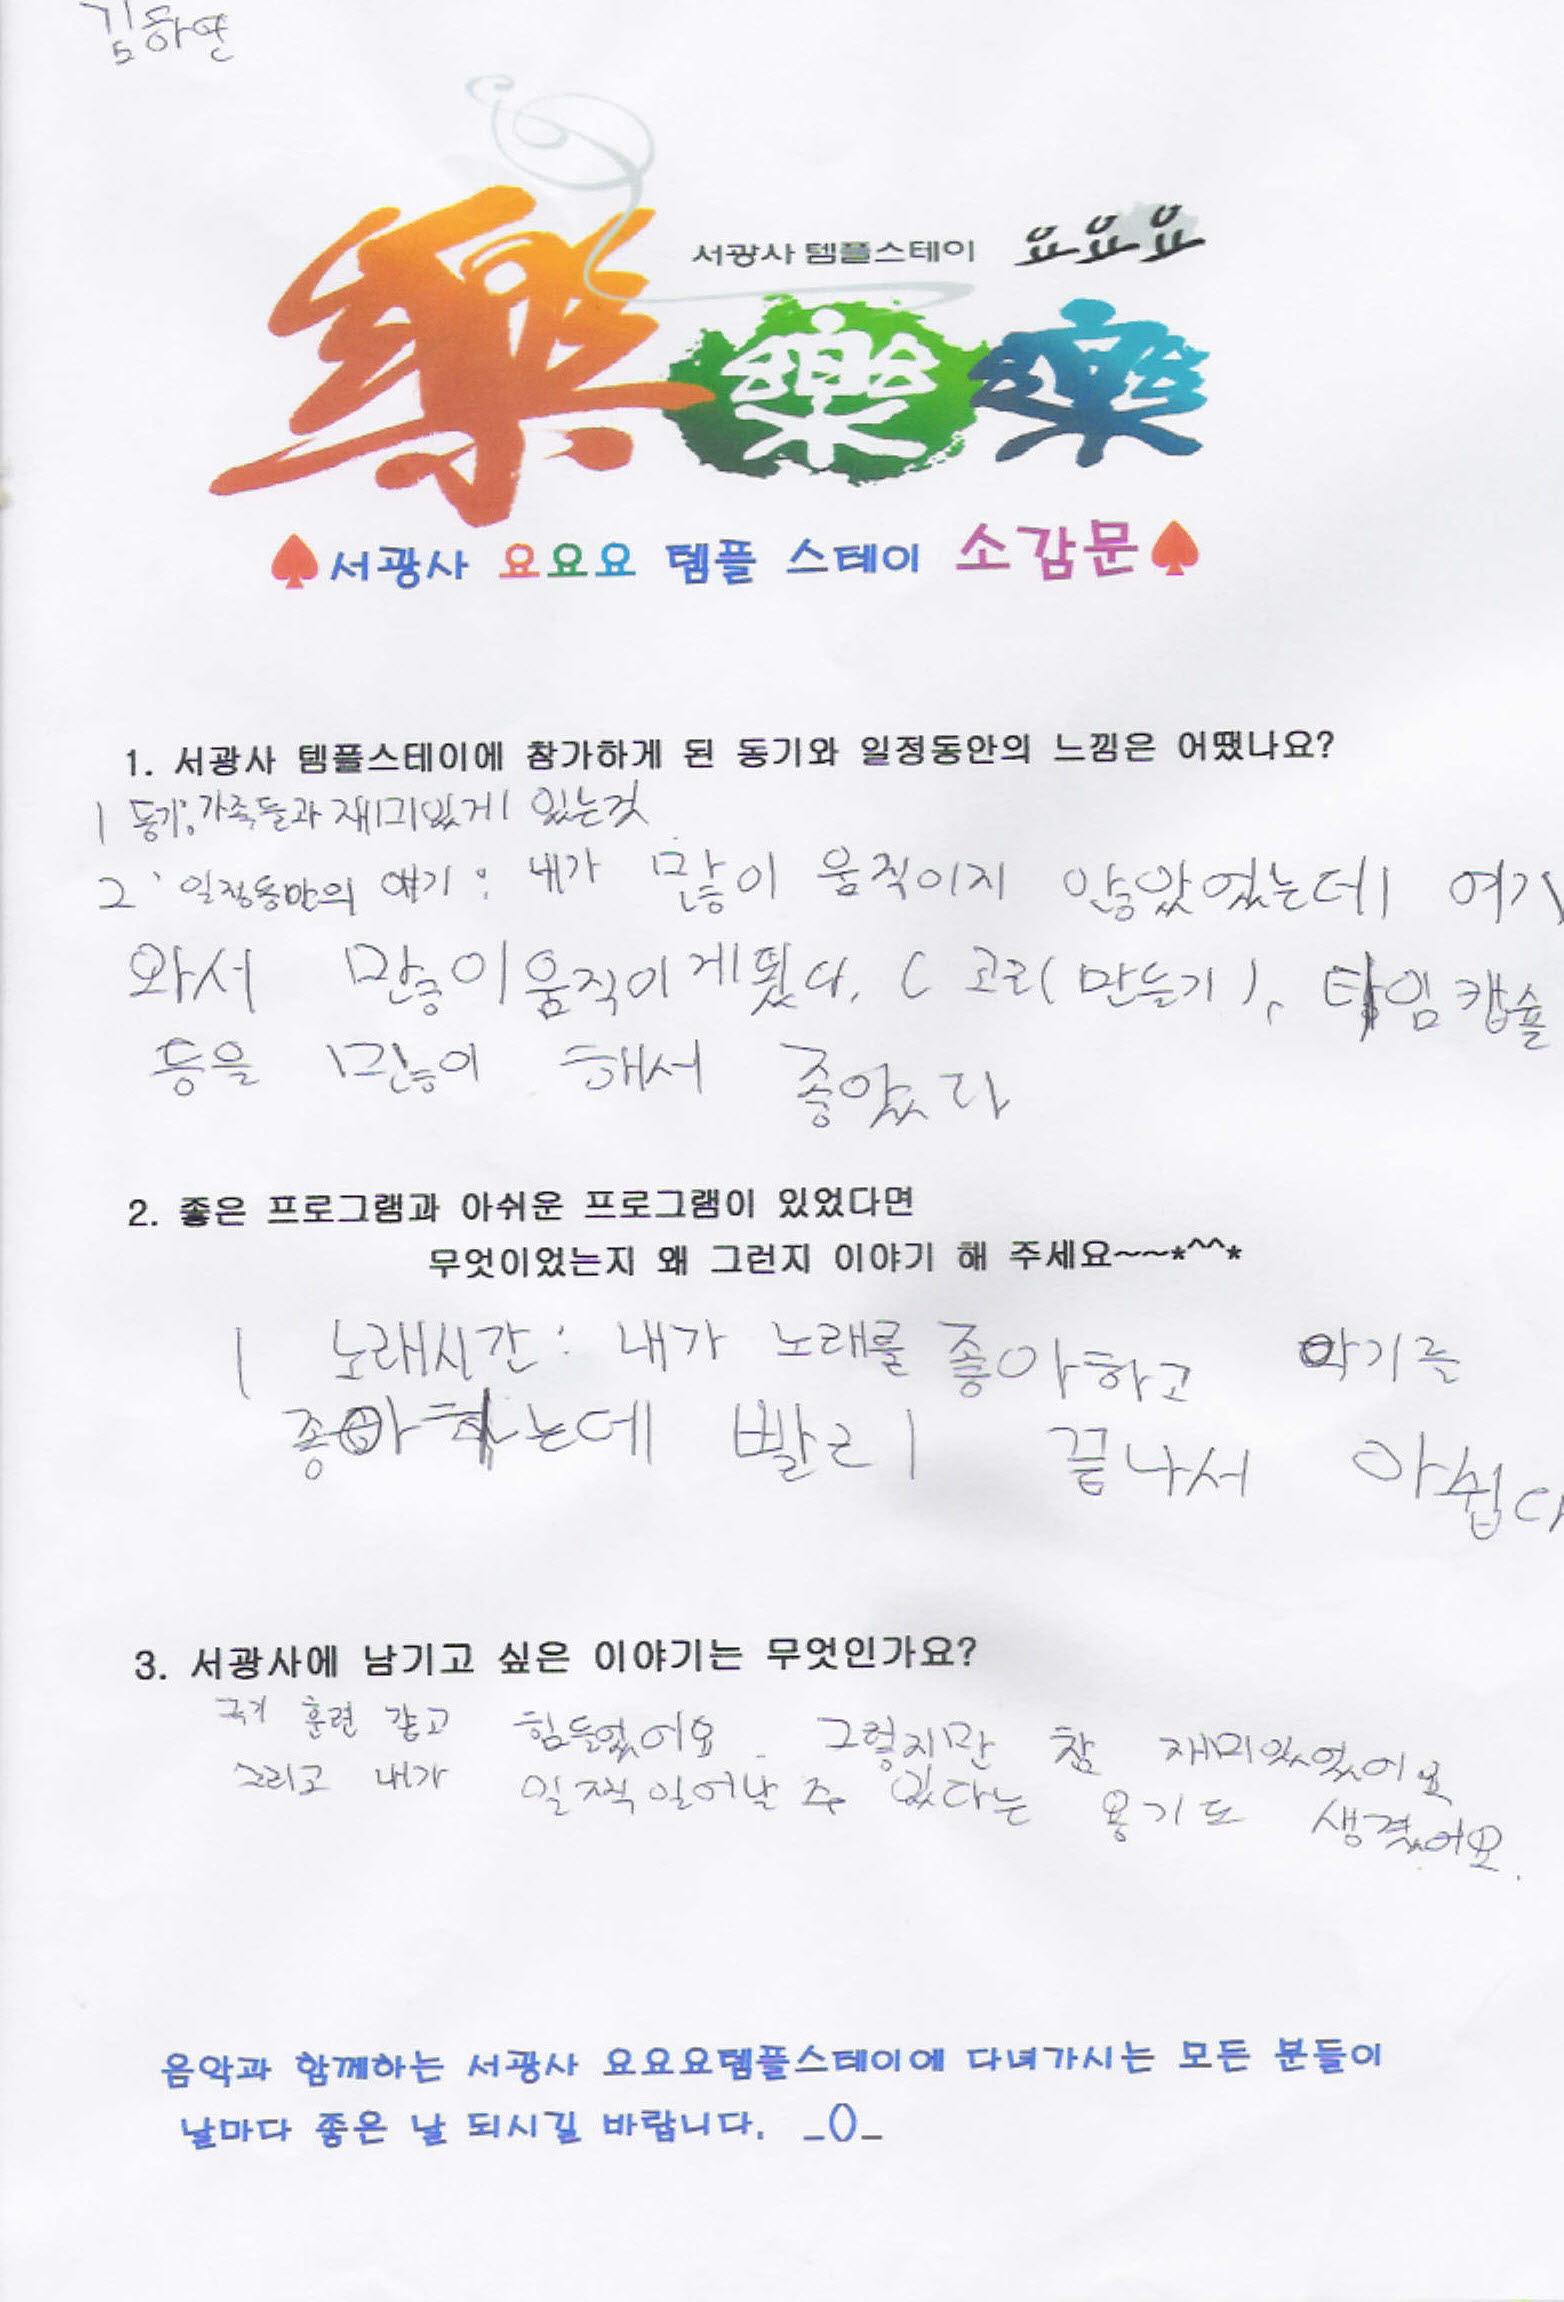 김하연
서광사 템플스테이 요요요
樂 樂 樂
♠서광사 요요요 템플 스테이 소감문♠
1. 서광사 템플스테이에 참가하게 된 동기와 일정동안의 느낌은 어땠나요?
1 동기: 가족들과 재미있게 있는것
2 일정동안의 얘기: 내가 많이 움직이지 않았었는데 여기
와서 많이움직이게됬다. ( 고리(만들기), 타임캡슐
등을 많이 해서 좋았다
2. 좋은 프로그램과 아쉬운 프로그램이 있었다면
무엇이었는지 왜 그런지 이야기 해 주세요~~*^^*
1 노래시간: 내가 노래를 좋아하고 악기를
좋아하는데 빨리 끝나서 아쉽다
3. 서광사에 남기고 싶은 이야기는 무엇인가요?
훈련 같고 힘들었어요. 그렇지만 참 재미있었어요
그리고 내가 일찍일어날 수 있다는 용기도 생겼어요.
음악과 함께하는 서광사 요요요템플스테이에 다녀가시는 모든 분들이
날마다 좋은 날 되시길 바랍니다. _()_